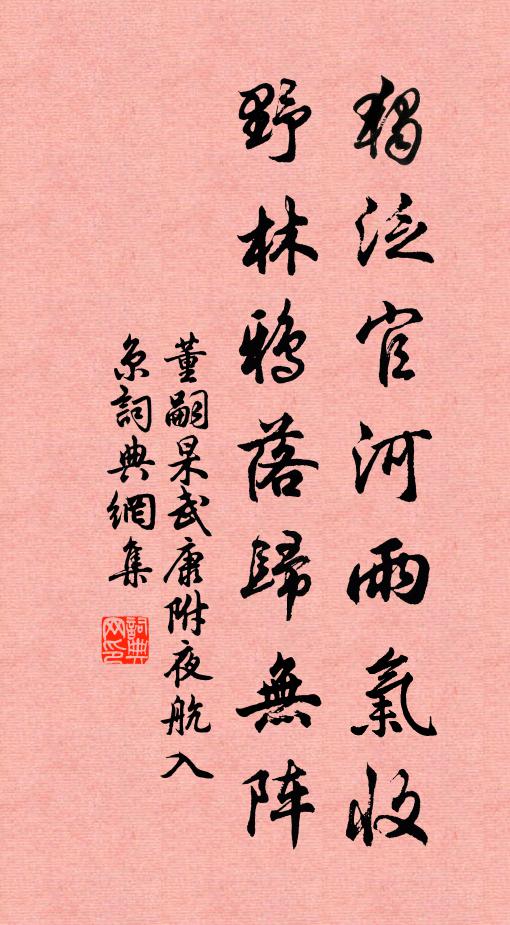 獨泛官河雨氣收
野林鴉落歸無阵
董嗣杲武康附夜航入
京詞典網集
詞典网印